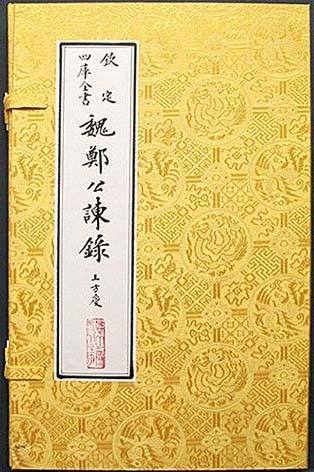 欽定
四庫全書
魏鄭公諫錄
王方慶